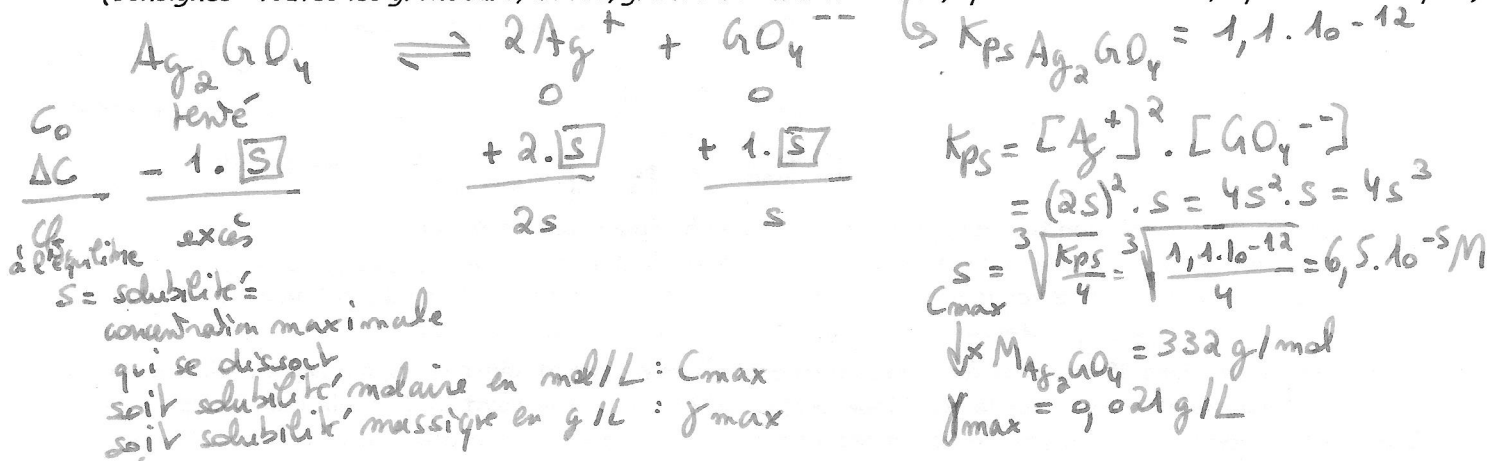 Ag₂CrO₄ ⇌ 2Ag⁺ + CrO₄⁻⁻
C₀ tenté 0 0
ΔC - 1. s + 2. s + 1. s
à l'équilibre excès 2s s
s = solubilité =
concentration maximale
qui se dissout
soit solubilité molaire en mol/L : Cmax
soit solubilité massique en g/L : γmax
↳ Kps Ag₂CrO₄ = 1,1.10⁻¹²
Kps = [Ag⁺]². [CrO₄⁻⁻]
= (2s)². s = 4s². s = 4s³
s = ∛(Kps/4) = ∛(1,1.10⁻¹²/4) = 6,5.10⁻⁵ M
Cmax
↓x M Ag₂CrO₄ = 332 g/mol
γmax = 0,021 g/L